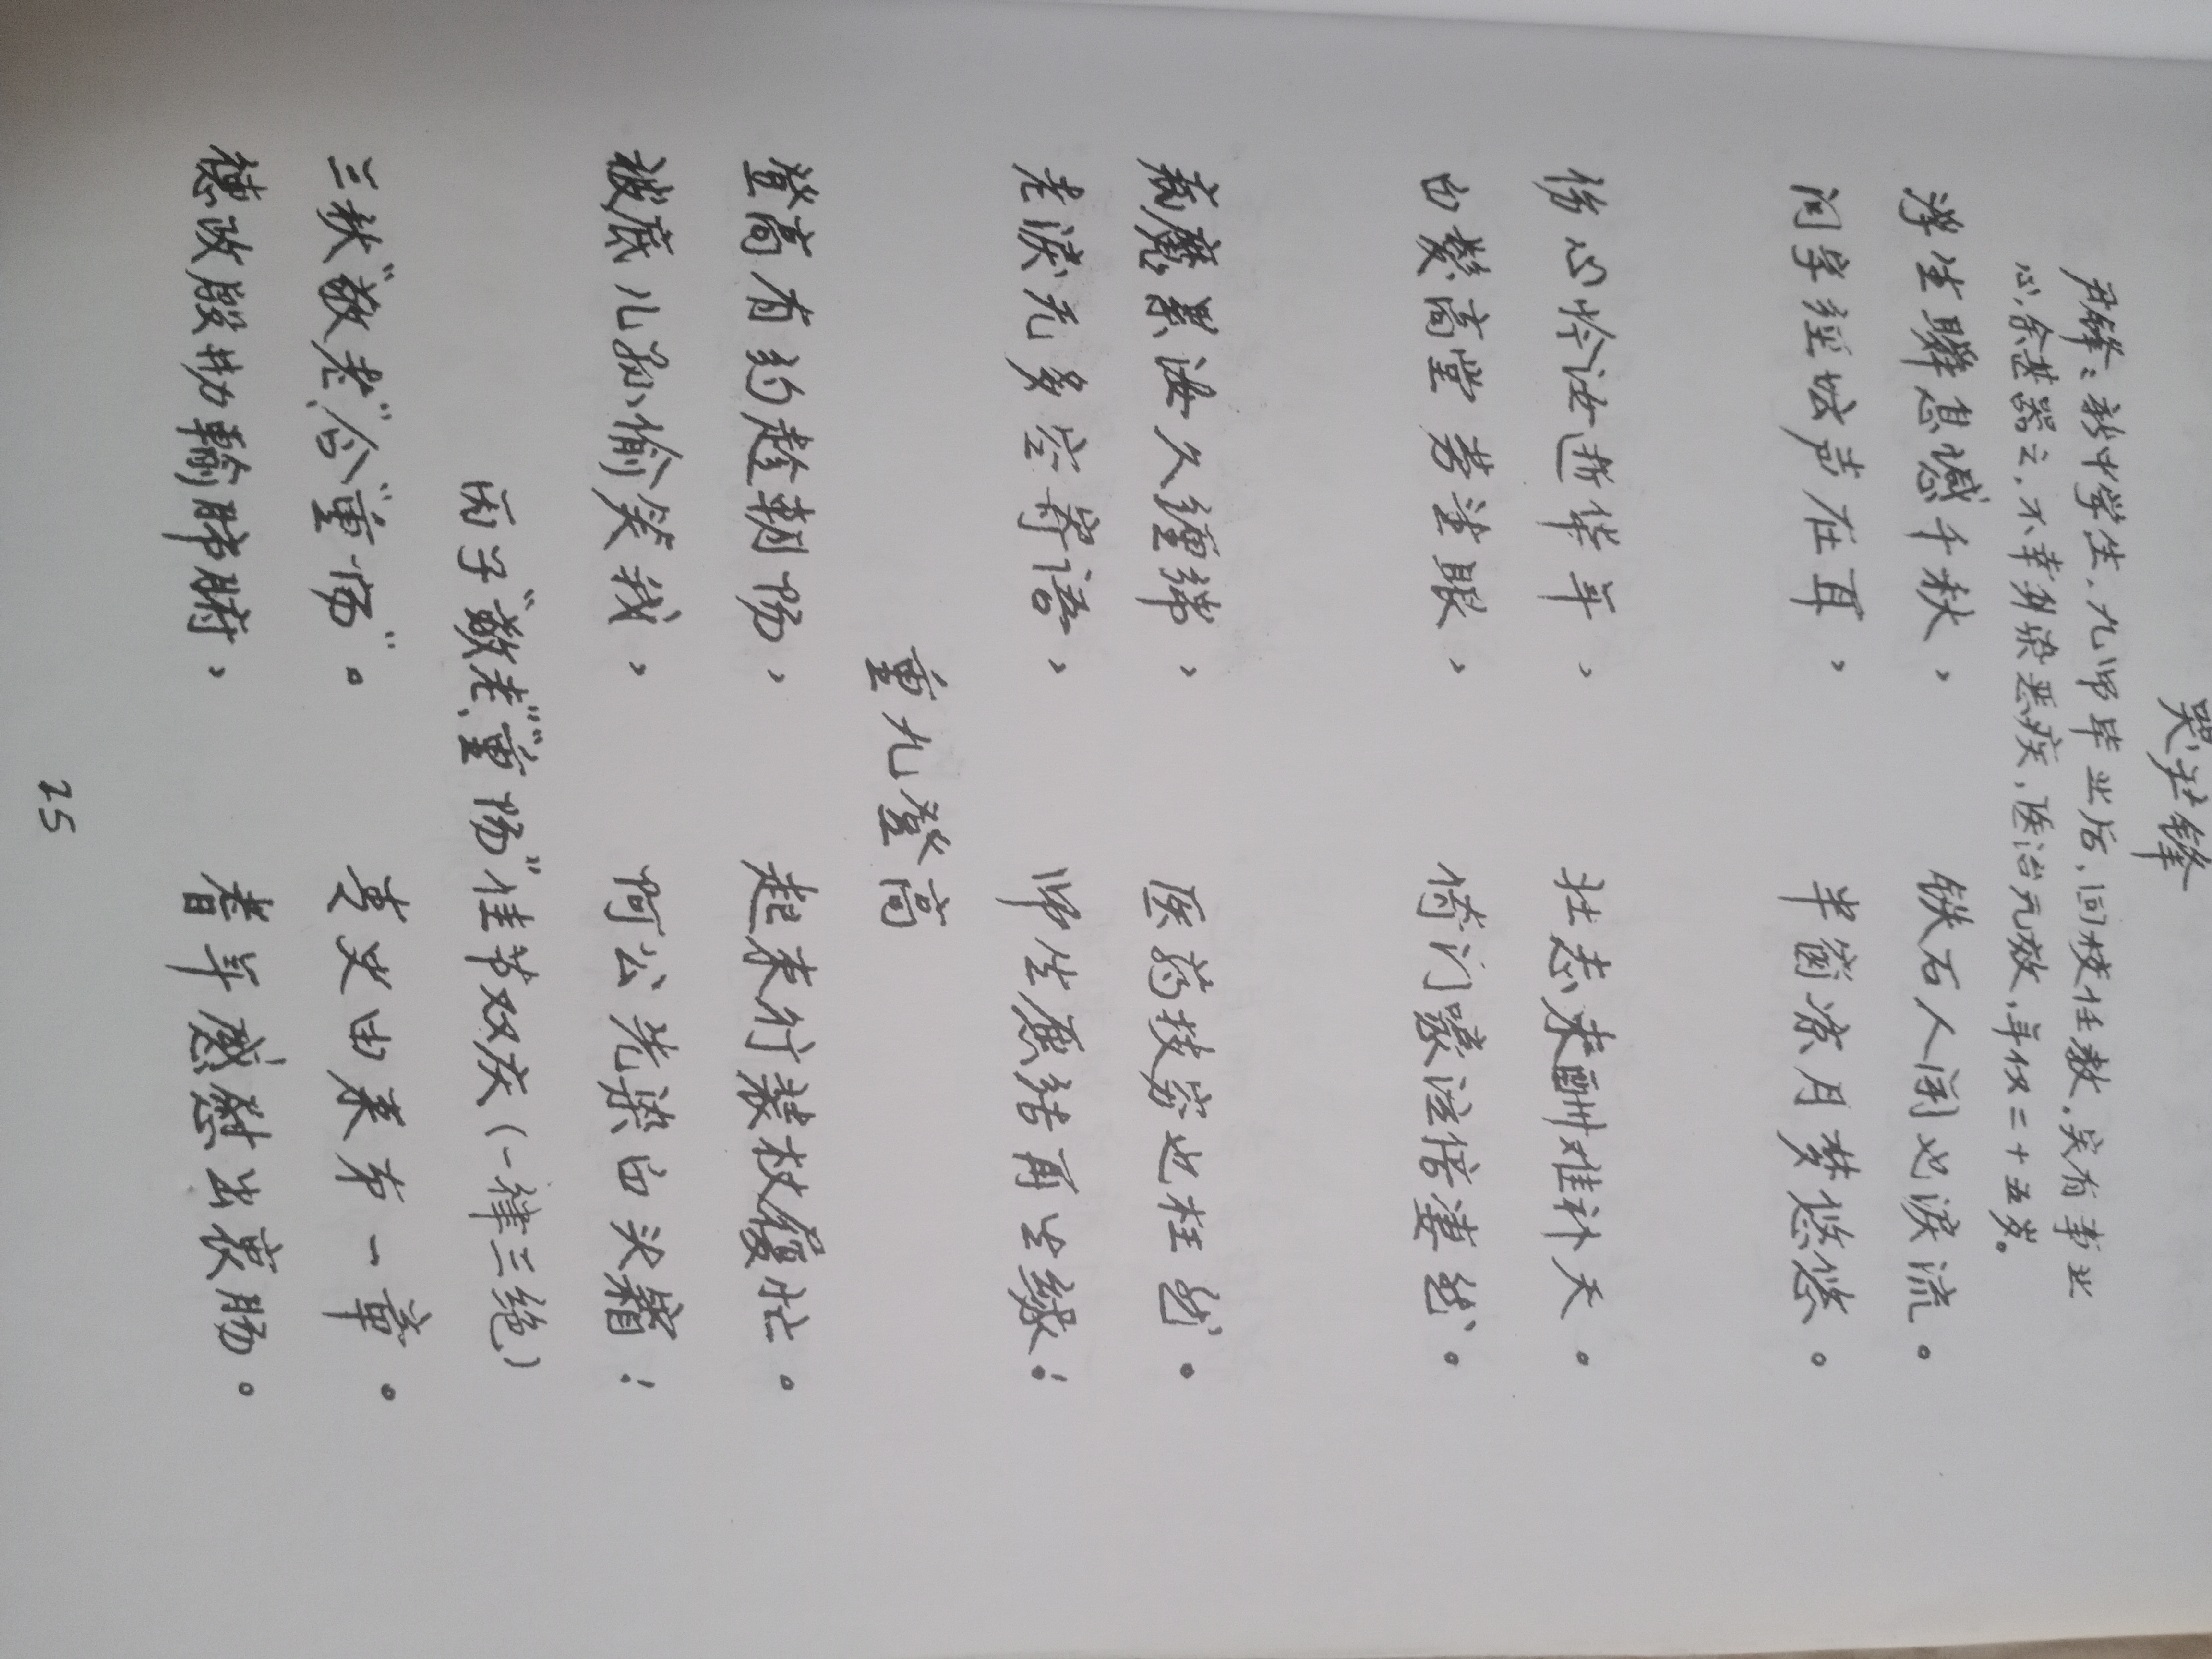 哭尹锋
尹锋：新中学生、九师毕业后，回校任教。吴有事业
心，余甚器之，不幸身染恶疾，医治无效，年仅二十五岁。
浮生瞬息憾千秋，　铁石人闻也泪流。
问字经坛声在耳，　半窗凉月梦悠悠。
伤心怜汝逝华年，　壮志未酬难补天。
白鬓高堂劳望眼，　倚门嚎泣倍凄然。
病魔累汝久缠绵，　医药技穷也枉然。
老泪无多空寄语，　师生愿结再生缘！
重九登高
登高有约趁朝阳，　起来行装杖履忙。
被底儿孙偷笑我，　阿公先染白头霜！
丙子“敬老”、“重阳”佳节双庆（一律三绝）
三秋“敬老”合“重阳”。　青史由来有一章。
德政殷勤输肺腑，　耆年感慰出衷肠。
25